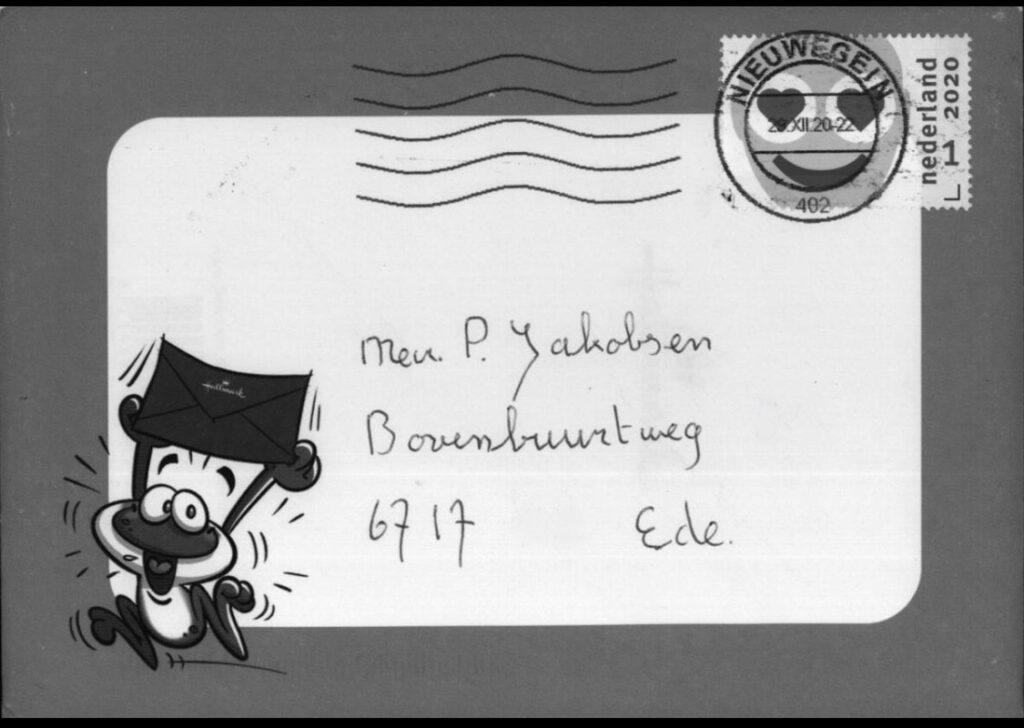 NIEUWEGEIN
29.XII.20-22
402
nederland
1 2020
Hallmark
Mev. P. Jakobsen
Bovenbuurtweg
6717 Ede.